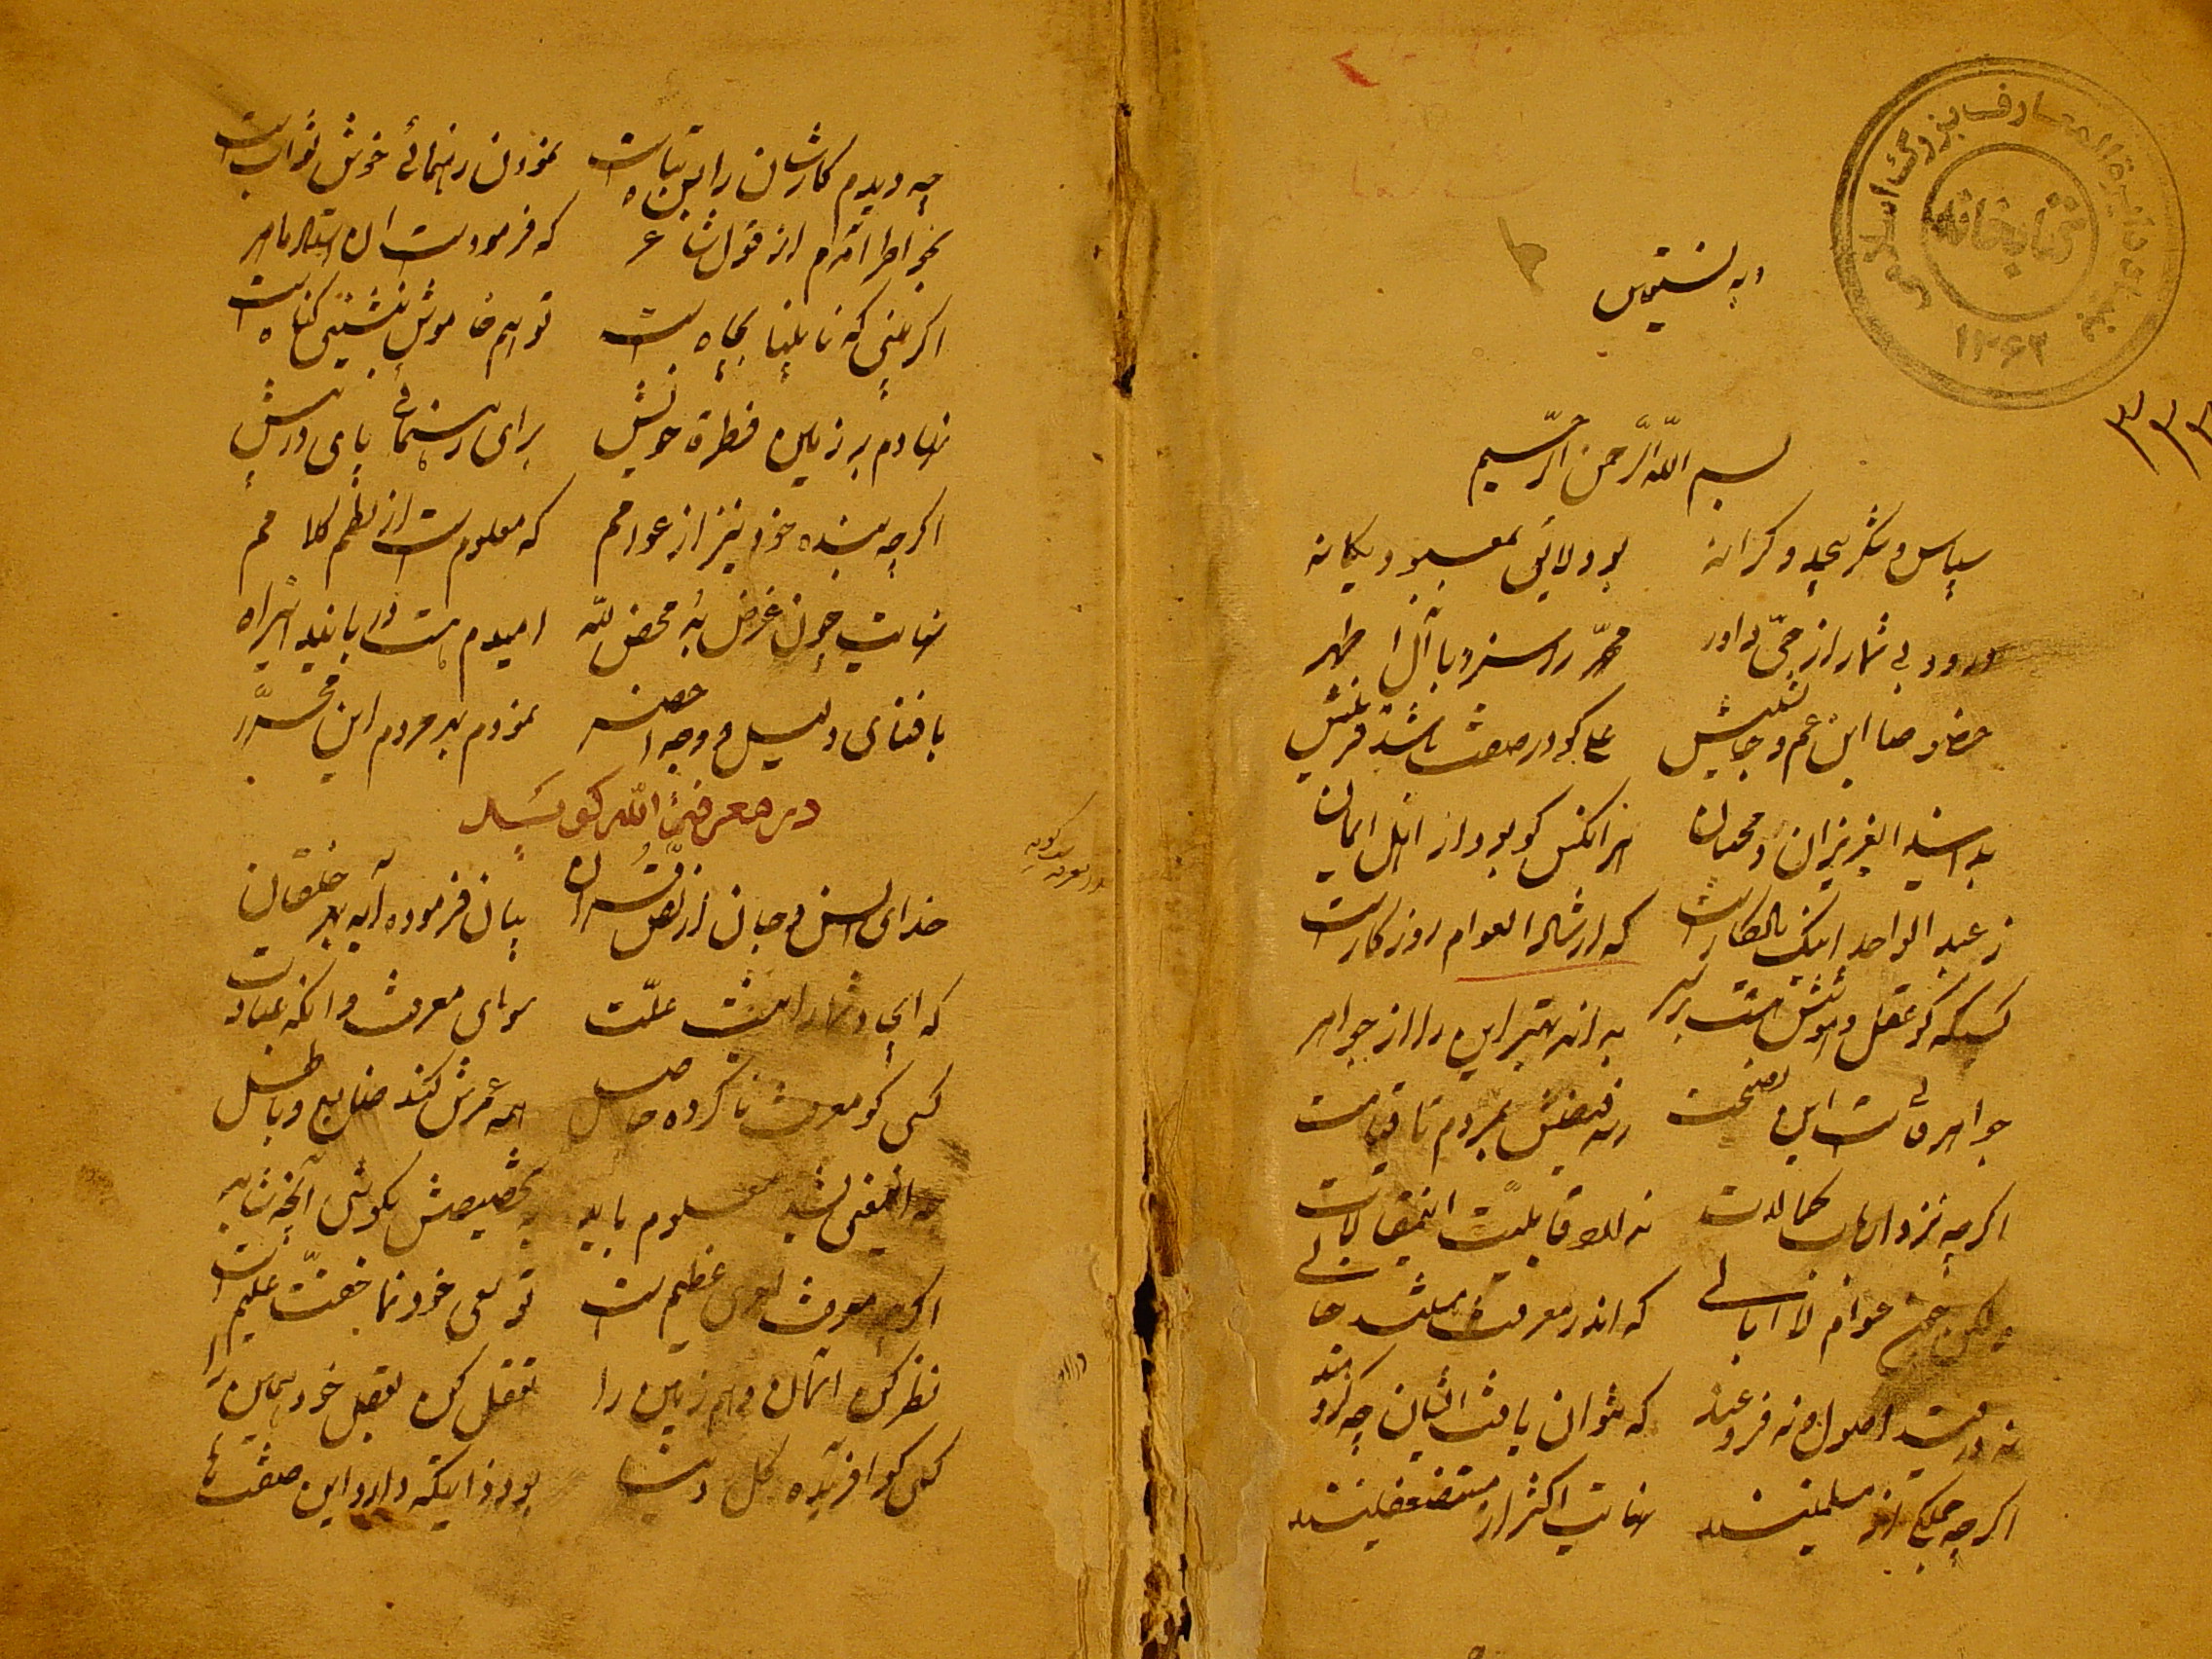 وبه نستعین
بسم الله الرحمن الرحیم
سپاس و شکر بیحد و کرانه بود لائق بمعبود یکانه
درود بی شمار از حی داور محمد را سزد با آل اطهر
خصوصا ابن عم و جانشینش علی کو در صفت باشد قرینش
بدانید ایعزیزان و محبان هر انکس کو بود از اهل ایمان
ز عبد الواحد اینک یادکار است که ارشاد العوام روزکار است
کسیکه کو عقل و هوشش هست بر سر به از بهتر این را از جواهر
جواهر فانی است این نصیحت رسد فیضش بمردم تا قیامت
اکرچه نزد ارباب کمالات ندارد قابلیت اینمقالات
ولیکن جمع عوام لا ابالی که اندر معرفت باشند خالی
نه در قید اصول و نه فروعند که نتوان یافت ایشان چه کروهند
اکرچه جملکی از مسلمینند نهایت اکثر از مستضعفینند
چه دیدم کارشان را بس تباه است نمودن رهنمائی خوش ثواب است
بخواطر آمدم از قول شاعر که فرمودست ان استاد ماهر
اکر بینی که نابینا بچاه است تو هم خاموش بنشینی کناه است
نهادم بر زمین فطرة خویش برای رهنمائی پای در پیش
اکرچه بنده خود نیز از عوامم که معلوم است از نظم کلامم
نهایت چون غرض بد محض لله امیدم هست دریابند این راه
باقنای دلیل و وجه اخصر نمودم بهر مردم این محرر
در معرفة الله کوید
در معرفت کوید
خدای انس و جان از نص قران بیان فرموده آیه بهر خلقان
که ایجاد شما را هست علت برای معرفت و انکه عبادت
کسی کو معرفت ناکرده حاصل همه عمرش کند ضایع و باطل
چه اینمعنی شد معلوم باید بتحصیصش بکوشی آنچه شاید
اکرچه معرفت امری عظیم است تو سعی خود نما خفت علیم است
نظر کن آسمان و هم زمین را تعقل کن بعقل خود همین را
کسی کو آفریده کل اشیا بود ذاتیکه دارد این صفتها
۳۳۳
کتابخانه
مرکز دائرة المعارف بزرگ اسلامی
۱۳۶۲